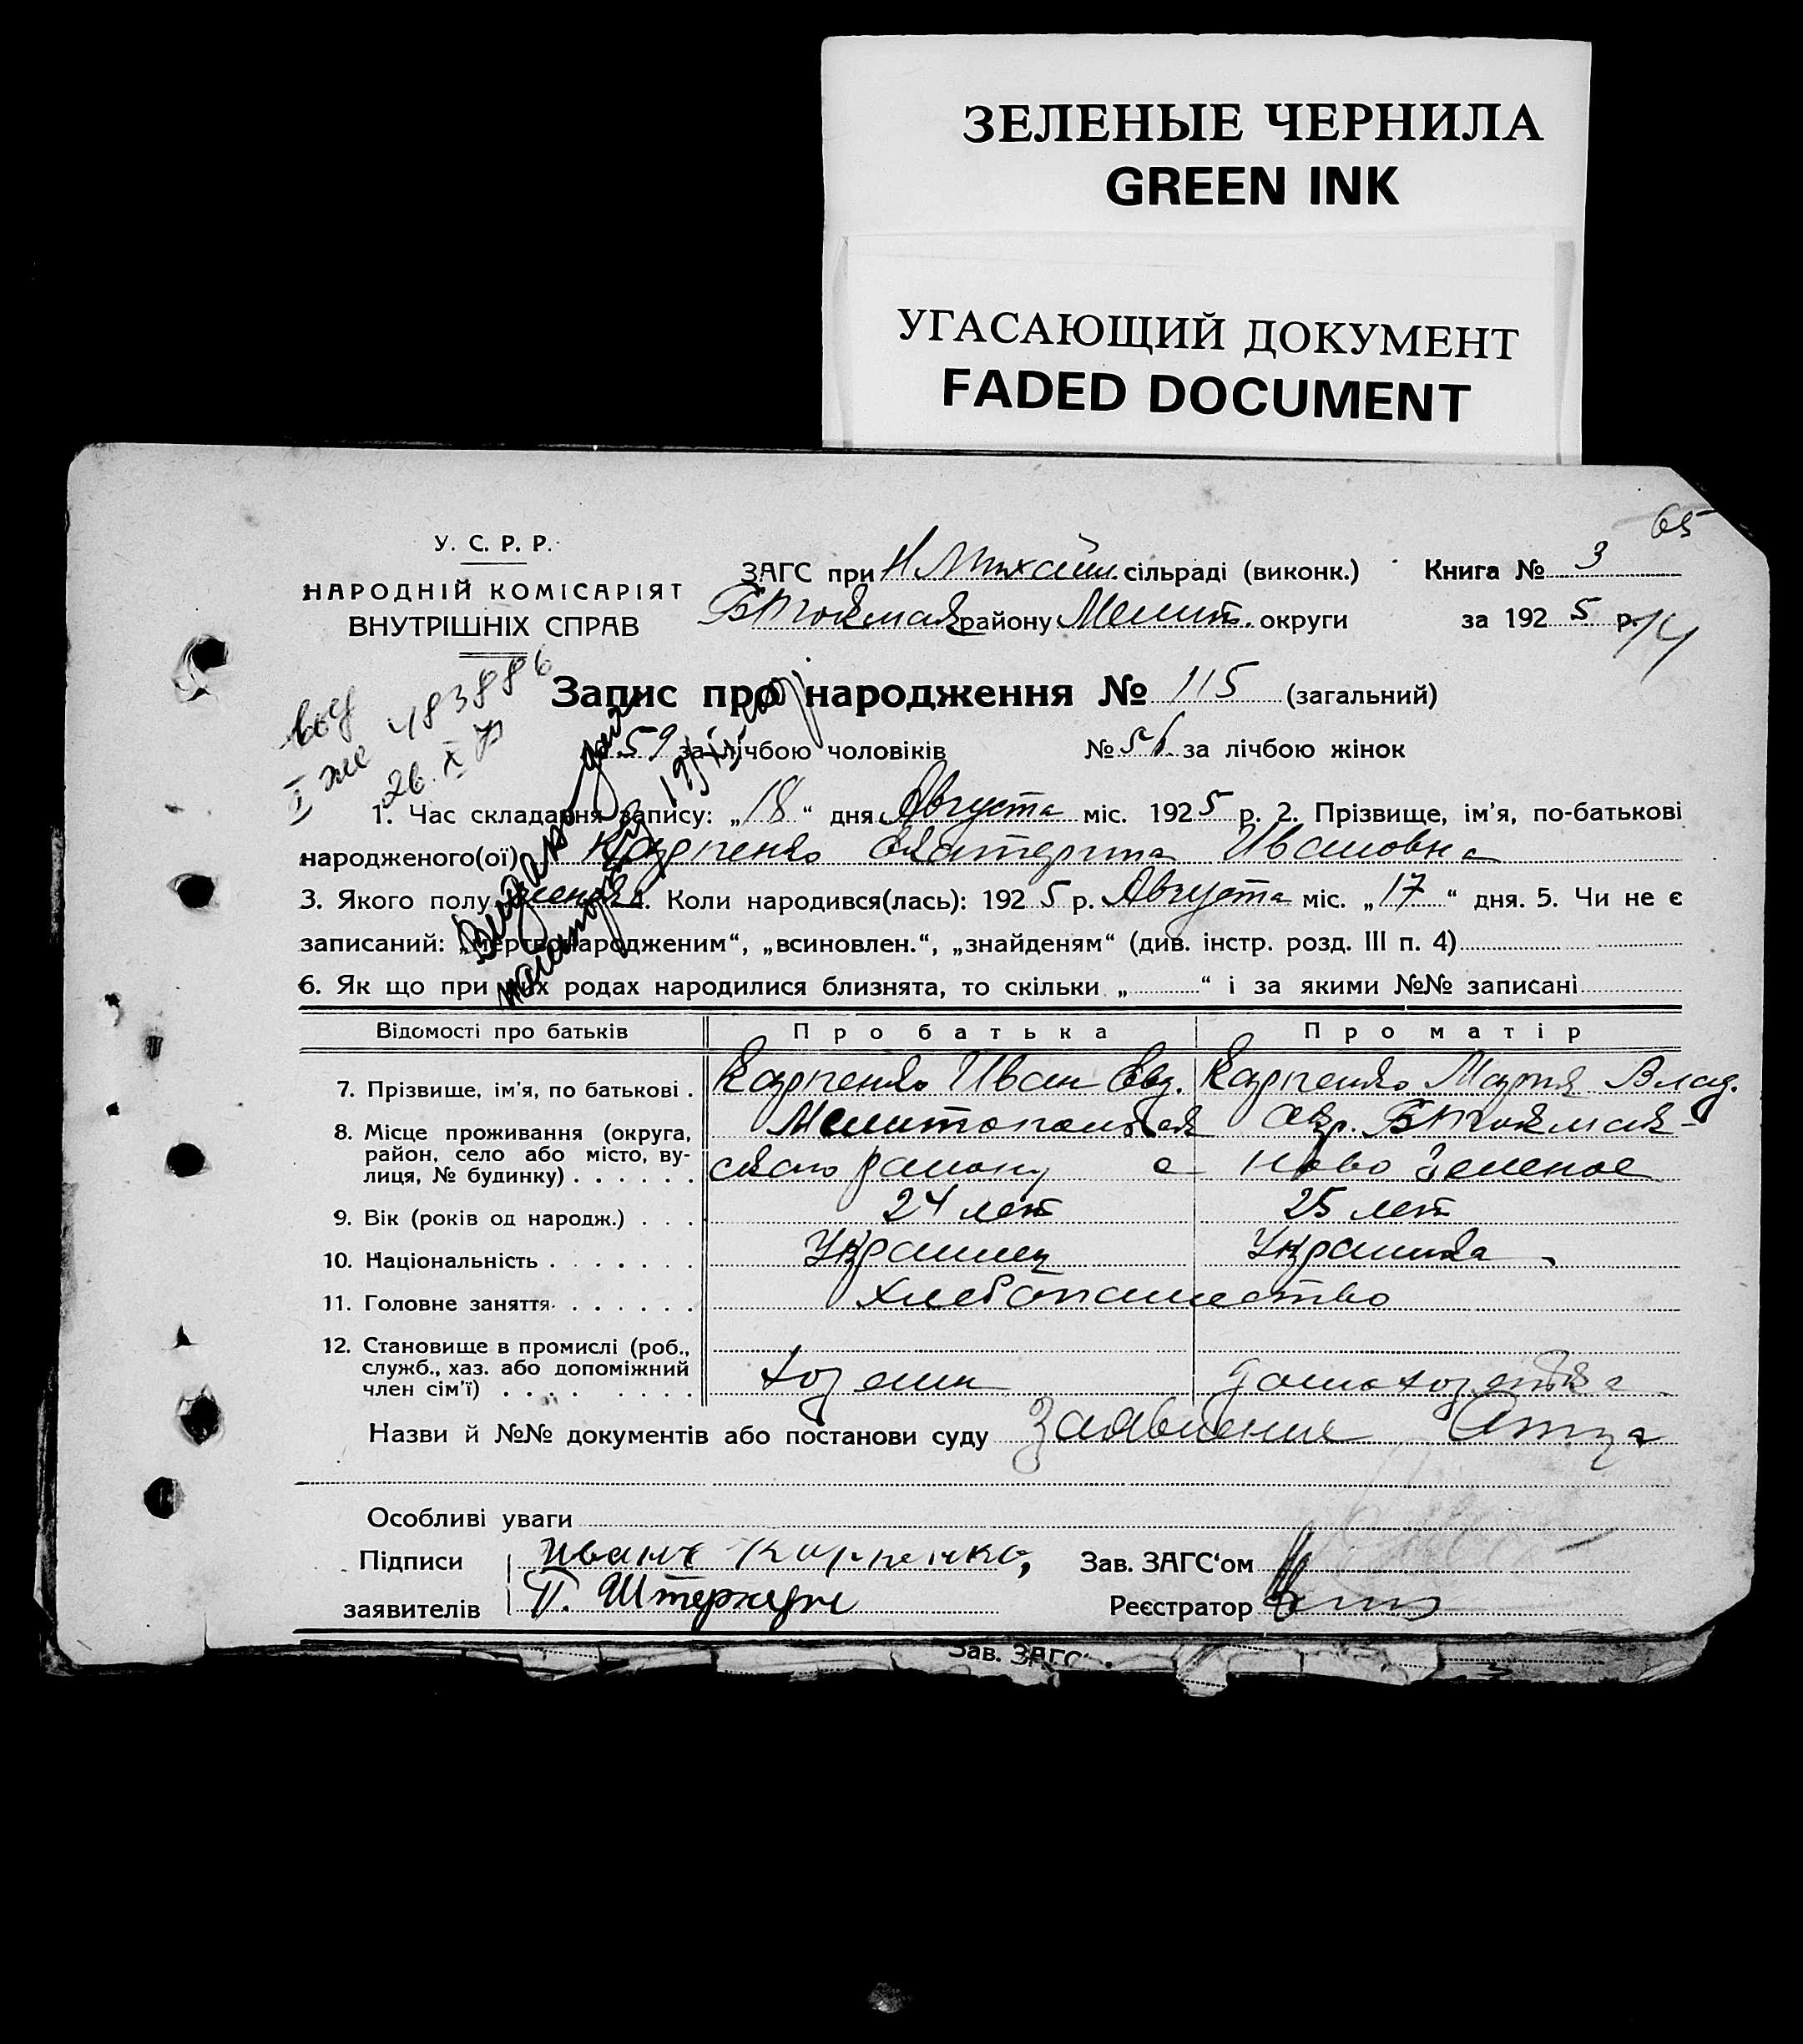 ЗЕЛЕНЫЕ ЧЕРНИЛА
GREEN INK
УГАСАЮЩИЙ ДОКУМЕНТ
FADED DOCUMENT
65
У. С. Р. Р.
НАРОДНІЙ КОМІСАРІЯТ
ВНУТРІШНІХ СПРАВ
ЗАГС при Н Михайл. сільраді (виконк.) Книга № 3
БТокмак району Мелит. округи за 1925 р.
14
483886
26.X
Запис про народження № 115 (загальний)
59 за лічбою чоловіків № 56 за лічбою жінок
1. Час складання запису: „18“ дня Августа міс. 1925 р. 2. Прізвище, ім'я, по-батькові
народженого(ої) Карпенко Екатерина Ивановна
3. Якого полу женск 4. Коли народився(лась): 1925 р. Августа міс. „17“ дня. 5. Чи не є
записаний: „мертвонародженим“, „всиновлен.“, „знайденям“ (див. інстр. розд. III п. 4)
6. Як що при цих родах народилися близнята, то скільки „ “ і за якими №№ записані
Відомості про батьків Про батька Про матір
7. Прізвище, ім'я, по батькові . Карпенко Иван Евд. Карпенко Мария Влад.
8. Місце проживання (округа, Мелитопольск окр. БТокмак-
район, село або місто, ву- ского району с Ново Зеленое
лиця, № будинку) . . . . . .
9. Вік (років од народж.) . . . 24 лет 25 лет
10. Національність . . . . . . . Украинец Украинка
11. Головне заняття . . . . . . Хлебопашество
12. Становище в промислі (роб.,
служб., хаз. або допоміжний хозяин домохозяйка
член сім'ї) . . . . . . . .
Назви й №№ документів або постанови суду Заявление Отца
Особливі уваги
Підписи Иванъ Карпенко, Зав. ЗАГС'ом
заявителів П. Реєстратор
Зав. ЗАГС